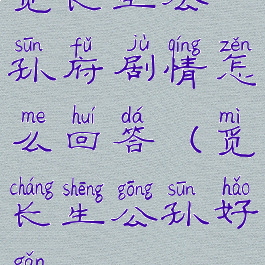 觅长生公
sūn fǔ jù qíng zěn
孙府剧情怎
me huí dá mì
么回答（觅
cháng shēng gōng sūn hǎo
长生公孙好
gǎn